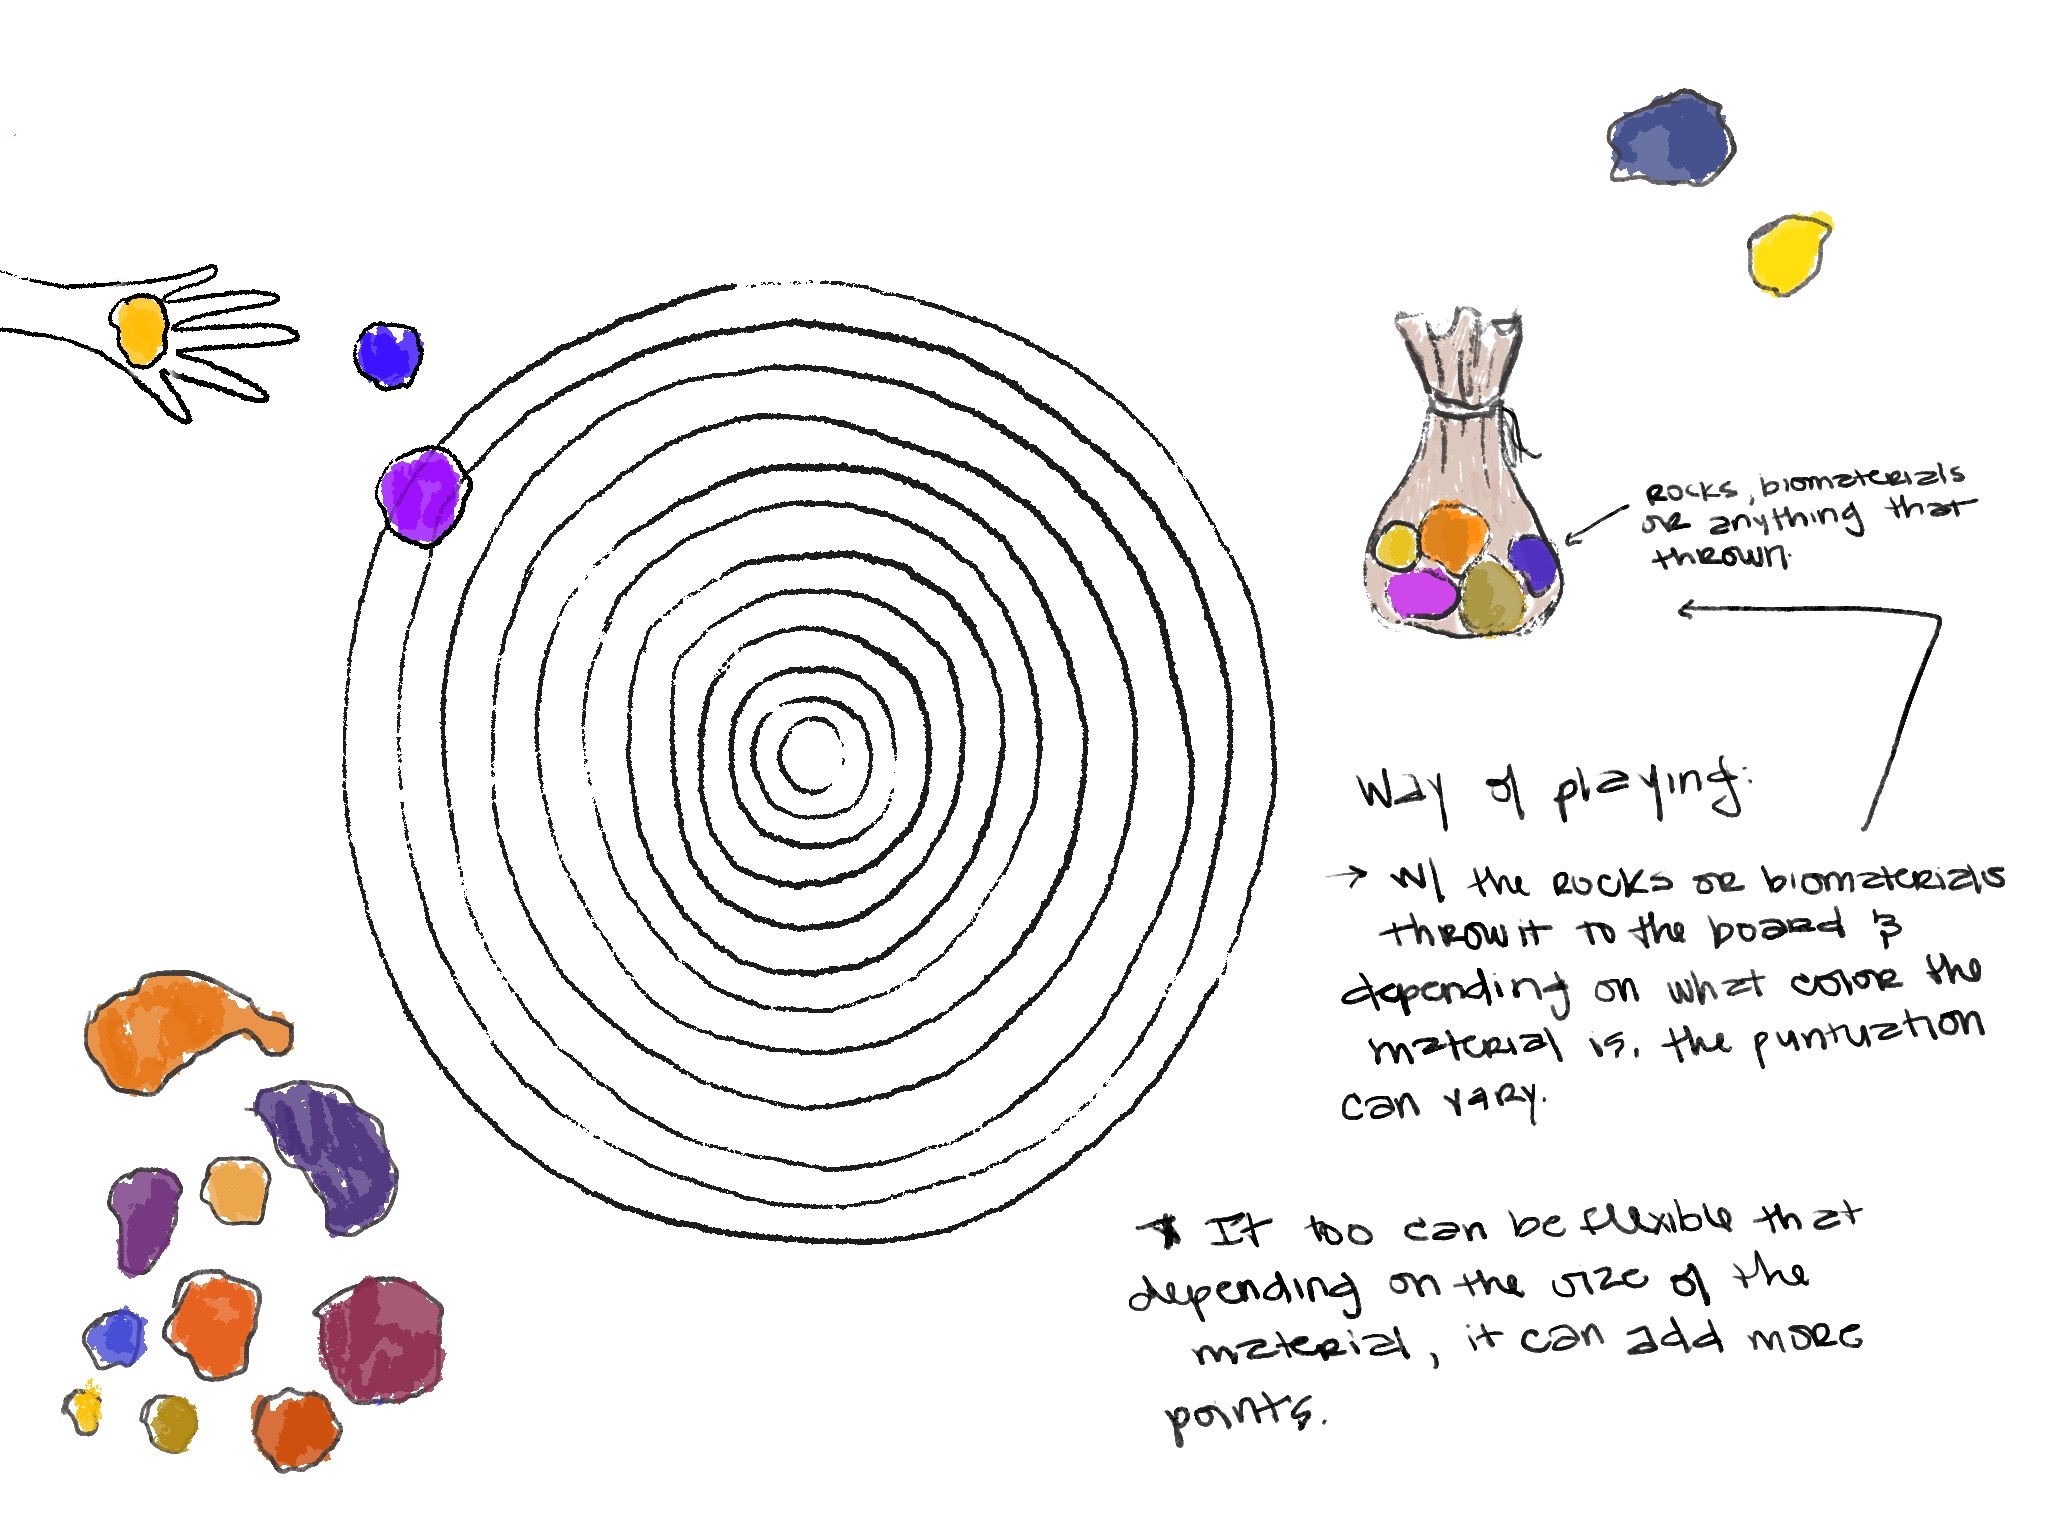 Rocks, biomaterials
or anything that
thrown.
Way of playing:
→ w/ the rocks or biomaterials
throw it to the board &
depending on what color the
material is, the puntuation
can vary.
* It too can be flexible that
depending on the size of the
material, it can add more
points.